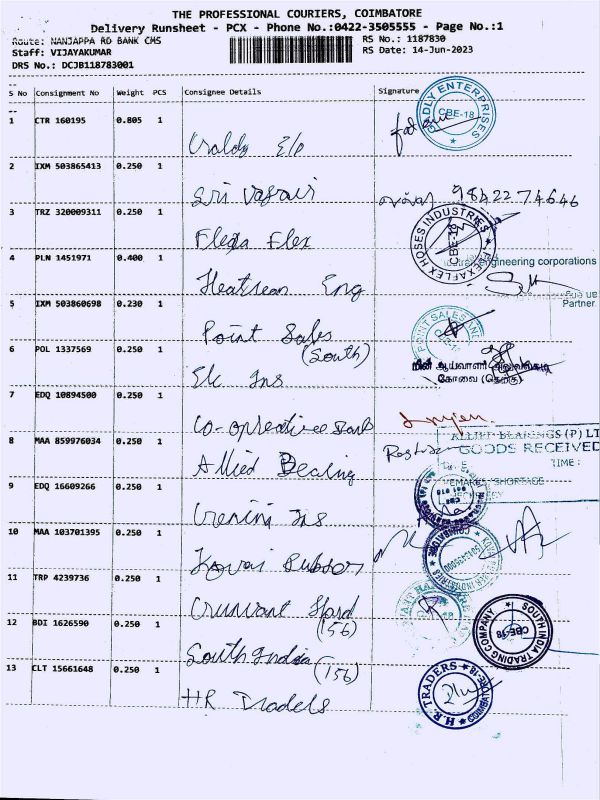 THE PROFESSIONAL COURIERS, COIMBATORE
Delivery Runsheet - PCX - Phone No.:0422-3505555 - Page No.:1
Route: NANJAPPA RD BANK CMS
RS No.: 1187830
Staff: VIJAYAKUMAR
RS Date: 14-Jun-2023
DRS No.: DCJB118783001
S No Consignment No Weight PCS Consignee Details Signature
1 CTR 160195 0.805 1
CBE-18
2 IXM 503865413 0.250 1 Sri
98422 74646
3 TRZ 320009311 0.250 1 Flexa Flex
FLEXAFLEX HOSES INDUSTRIES
CBE-18
4 PLN 1451971 0.400 1 Heatrean Eng
engineering corporations
Partner
5 IXM 503860698 0.230 1 Point Sales
POINT SALES
6 POL 1337569 0.250 1 (South)
Elc Ins
மின் ஆய்வாளர் அலுவலகம்
கோவை (தெற்கு)
7 EDQ 10894500 0.250 1 Co-operative Bank
8 MAA 859976034 0.250 1 Allied Bearing
ALLIED BEARINGS (P) LT
GOODS RECEIVED
TIME :
REMARKS: SHORTAGE
9 EDQ 16609266 0.250 1 Ins
10 MAA 103701395 0.250 1 Kovai Rubber
11 TRP 4239736 0.250 1 Hard
(156)
12 BDI 1626590 0.250 1 South India
(156)
SOUTH INDIA TRADING COMPANY
CBE-18
13 CLT 15661648 0.250 1 HR Traders
H.R. TRADERS
COIMBATORE-18